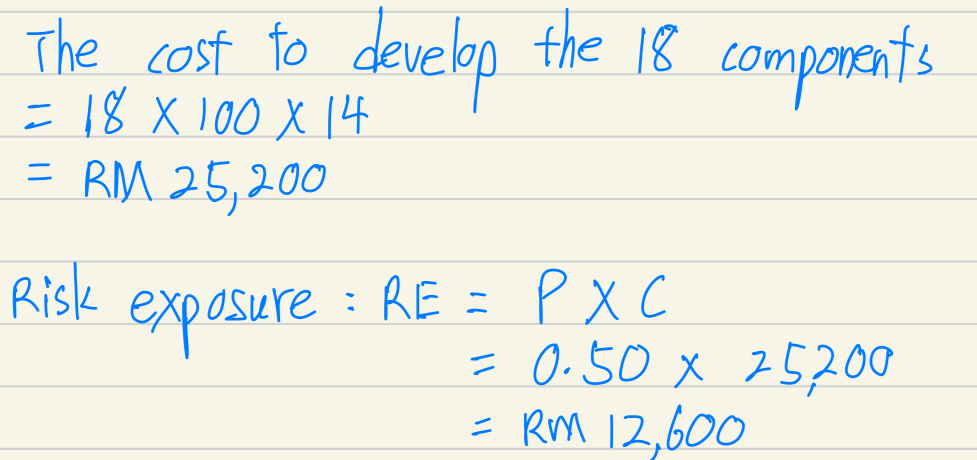 The cost to develop the 18 components
= 18 X 100 X 14
= RM 25,200
Risk exposure : RE = P X C
= 0.50 x 25,200
= RM 12,600